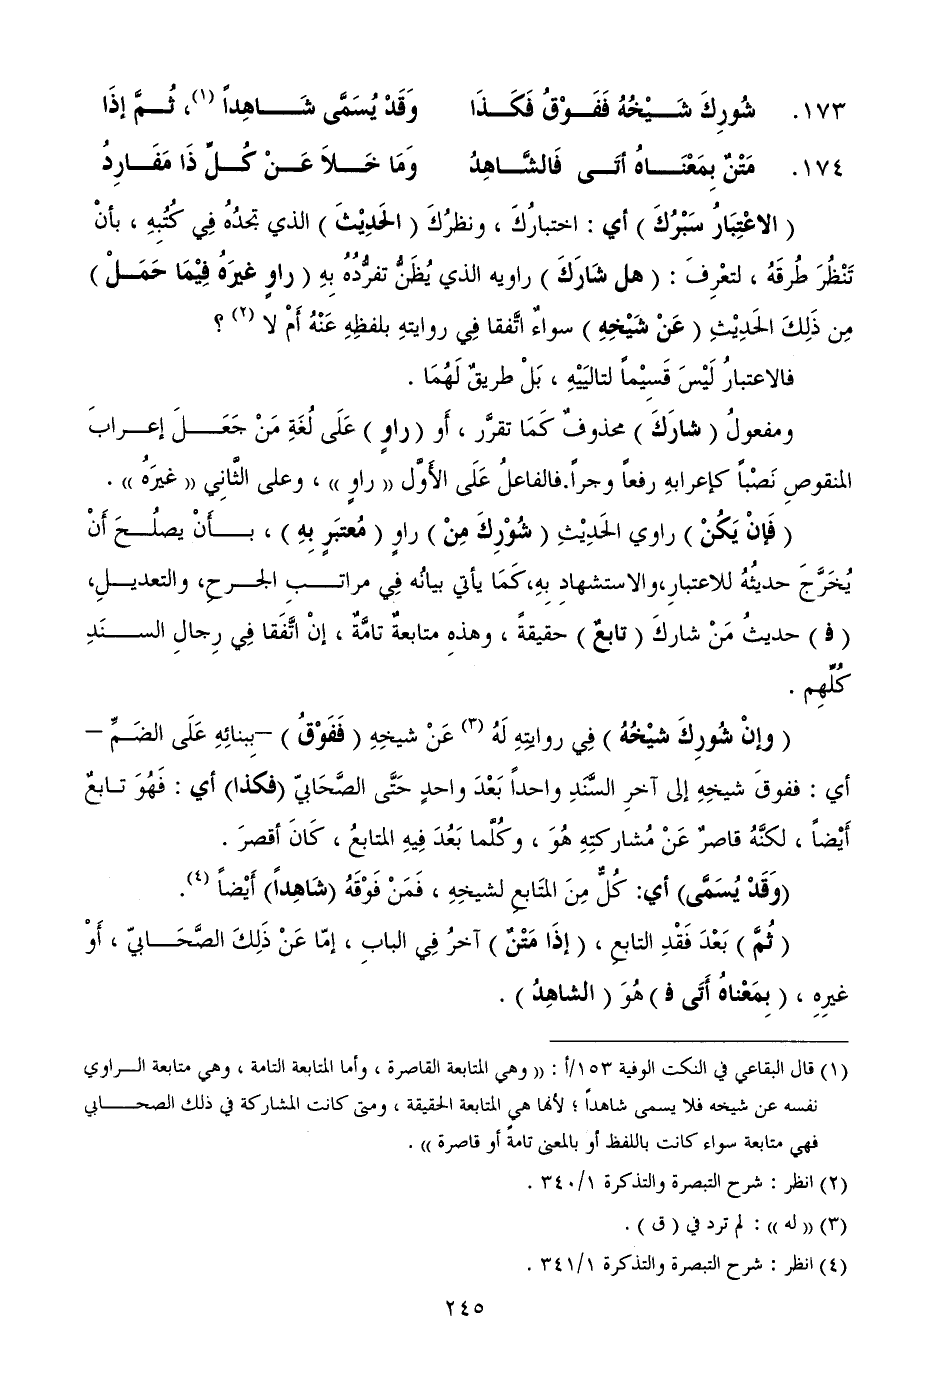 ١٧٣. شُورِكَ شَـــيْخُهُ فَفَــوْقُ فَكَــذَا وَقَدْ يُسَمَّى شَـــاهِداً (١)، ثُــمَّ إذَا
١٧٤. مَتْنٌ بِمَعْنَــاهُ أتَــى فَالشَّاهِدُ وَمَا خَــلاَ عَــنْ كُــلِّ ذَا مَفَــارِدُ
( الاعْتِبَارُ سَبْرُكَ ) أي : اختبارُكَ ، ونظرُكَ ( الحَدِيْثَ ) الذي تجدُهُ فِي كُتُبِهِ ، بأنْ
تَنْظُرَ طُرقَهُ ، لتعْرِفَ : ( هل شَارَكَ ) راويه الذي يُظَنُّ تفرُّدُهُ بِهِ ( راوٍ غيرَهُ فِيْمَا حَمَــلْ )
مِن ذَلِكَ الحَدِيْثِ ( عَنْ شَيْخِهِ ) سواءٌ اتَّفقا فِي روايتِهِ بلفظِهِ عَنْهُ أمْ لا (٢) ؟
فالاعتبارُ لَيْسَ قَسِيْماً لتالِيَيْهِ ، بَلْ طريقٌ لَهُمَا .
ومفعولُ ( شارَكَ ) محذوفٌ كَمَا تقرَّر ، أَو ( راوٍ ) عَلَى لُغَةِ مَنْ جَعَــلَ إعــرابَ
المنقوصِ نَصْباً كإعرابهِ رفعاً وجراً.فالفاعلُ عَلَى الأوَّل (( راوٍ )) ، وعلى الثَّاني (( غيرُهُ )) .
( فَإنْ يَكُنْ ) راوي الحَدِيْثِ ( شُوْرِكَ مِنْ ) راوٍ ( مُعتَبَرٍ بِهِ ) ، بـــأنْ يصلُــحَ أنْ
يُخَرَّجَ حديثُهُ للاعتبارِ،والاستشهادِ بِهِ،كَمَا يأتي بيانُه فِي مراتـــبِ الجــرحِ، والتعديــلِ،
( فـ ) حديثُ مَنْ شاركَ ( تابعٌ ) حقيقةً ، وهذهِ متابعةٌ تامَّةٌ ، إنْ اتَّفَقا فِي رجالِ الســـنَدِ
كُلِّهِم .
( وإنْ شُورِكَ شيْخُهُ ) فِي روايتِهِ لَهُ (٣) عَنْ شيخِهِ ( فَفَوْقُ ) –ببنائِهِ عَلَى الضَمِّ –
أي : ففوقَ شيخِهِ إلى آخرِ السَّنَدِ واحداً بَعْدَ واحدٍ حَتَّى الصَّحَابيّ (فكذا) أي : فَهُوَ تــابعٌ
أَيْضاً ، لكنَّهُ قاصرٌ عَنْ مُشاركتِهِ هُوَ ، وكُلَّما بَعُدَ فِيهِ المتابعُ ، كَانَ أقصرَ .
(وَقَدْ يُسَمَّى) أي: كُلٌّ مِنَ المتَابعِ لشيخِهِ ، فَمَنْ فَوْقَهُ (شَاهِداً) أَيْضاً (٤).
( ثُمَّ ) بَعْدَ فَقْدِ التابعِ ، ( إذَا مَتْنٌ ) آخرُ فِي البابِ ، إمّا عَنْ ذَلِكَ الصَّحَــابيّ ، أَوْ
غيرِهِ ، ( بِمَعْناهُ أَتَى فـ ) هُوَ ( الشاهِدُ ) .
(١) قال البقاعي في النكت الوفية ١٥٣/أ : (( وهي المتابعة القاصرة ، وأما المتابعة التامة ، وهي متابعة الــراوي
نفسه عن شيخه فلا يسمى شاهداً ؛ لأنها هي المتابعة الحقيقة ، ومتى كانت المشاركة في ذلك الصحـــابي
فهي متابعة سواء كانت باللفظ أو بالمعنى تامة أو قاصرة )) .
(٢) انظر : شرح التبصرة والتذكرة ٣٤٠/١ .
(٣) (( له )) : لم ترد في ( ق ) .
(٤) انظر : شرح التبصرة والتذكرة ٣٤١/١ .
٢٤٥